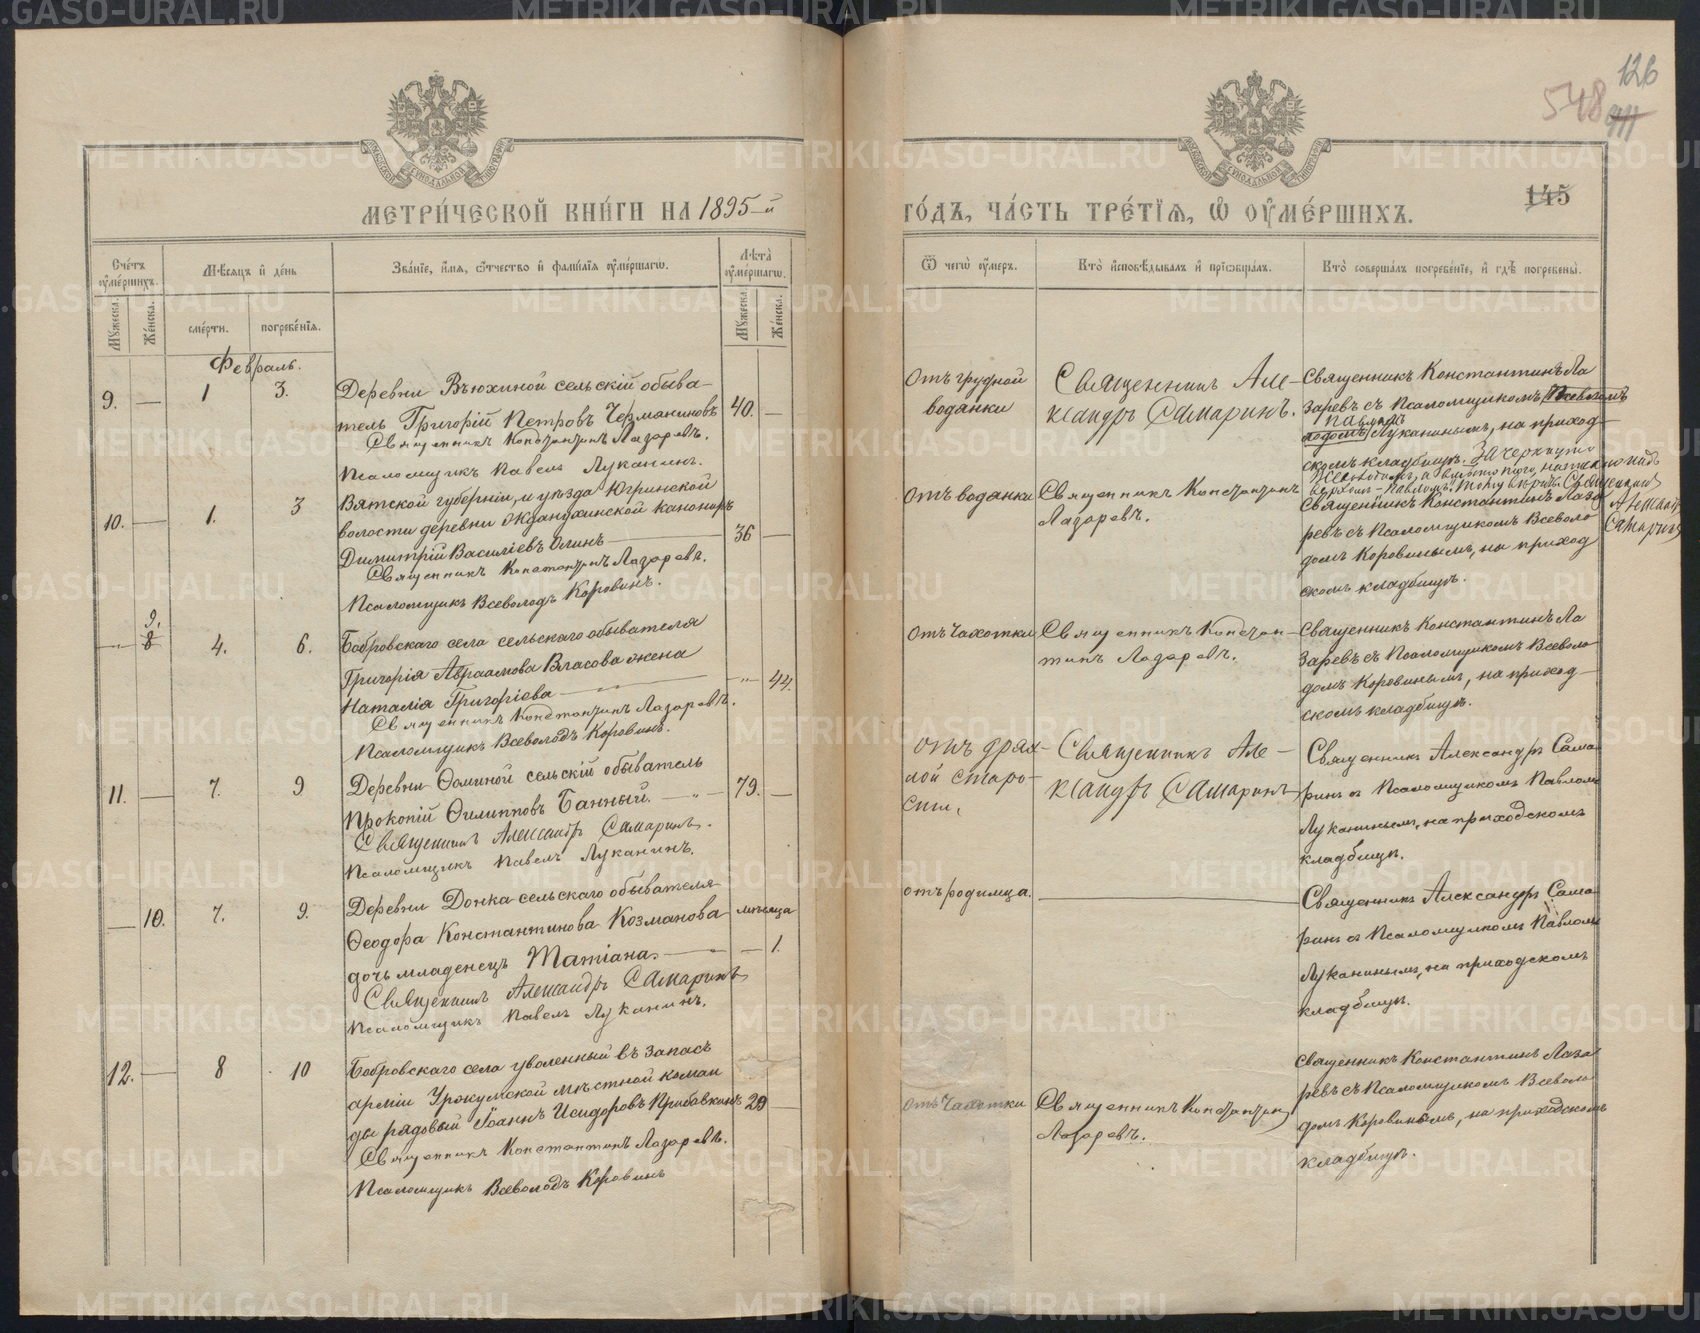 126
548
145
МЕТРИ́ЧЕСКОЙ КНИ́ГИ НА 1895-й
ГО́ДЪ, ЧА́СТЬ ТРЕ́ТІѦ, Ѡ ОУМЕ́РШИХЪ.
Сче́тъ оуме́ршихъ.
Мѣ́сяцъ и де́нь
Зва́ніе, и́мя, ѻ́тчество и фами́лія оуме́ршагѡ.
Лѣта̀ оуме́ршагѡ.
Мꙋ́жеска.
Же́нска.
сме́рти.
погребе́нія.
Мꙋ́жеска.
Же́нска.
Ѿ чегѡ̀ оу́меръ.
Кто̀ и҆сповѣ́дывалъ и҆ прїѡбща́лъ.
Кто̀ соверша́лъ погребе́нїе, и҆ гдѣ̀ погребены̀.
Февраль.
9. — 1 3.
Деревни Вьюхиной сельскій обыва-
тель Григорій Петровъ Черманиновъ 40. —
Священникъ Константинъ Лазаревъ.
Псаломщикъ Павелъ Луканинъ.
Отъ грудной
водянки
Священникъ Але-
ксандръ Самаринъ.
Священникъ Константинъ Ла
заревъ съ Псаломщикомъ Всеволо
Павломъ
домъ Луканинымъ, на приход-
скомъ кладбищѣ. Зачеркнуто
10. — 1. 3
Вятской губерніи, и уѣзда Югринской
волости деревни канониръ
Димитрій Василіевъ Олинъ — 36 —
Священникъ Константинъ Лазаревъ.
Псаломщикъ Всеволодъ Коровинъ.
Отъ водянки
Священникъ Константинъ
Лазаревъ.
Священникъ Константинъ Лаза
ревъ съ Псаломщикомъ Всеволо
домъ Коровинымъ, на приход
скомъ кладбищѣ.
Самаринъ
9.
— 8 4. 6.
Бобровскаго села сельскаго обывателя
Григорія Авраамова Власова жена
Наталія Григоріева — 44.
Священникъ Константинъ Лазаревъ.
Псаломщикъ Всеволодъ Коровинъ.
Отъ чахотки
Священникъ Констан-
тинъ Лазаревъ.
Священникъ Константинъ Ла
заревъ съ Псаломщикомъ Всеволо
домъ Коровинымъ, на приход-
скомъ кладбищѣ.
11. — 7. 9
Деревни Ѳоминой сельскій обыватель
Прокопій Филипповъ Банный. — 79. —
Священникъ Александръ Самаринъ.
Псаломщикъ Павелъ Луканинъ.
отъ дрях-
лой старо-
сти.
Священникъ Але-
ксандръ Самаринъ
Священникъ Александръ Сама
ринъ съ Псаломщикомъ Павломъ
Луканинымъ, на приходскомъ
кладбищѣ.
— 10. 7. 9.
Деревни Донка сельскаго обывателя
Ѳеодора Константинова Козманова мѣсяца
дочь младенецъ Татіана. — 1.
Священникъ Александръ Самаринъ
Псаломщикъ Павелъ Луканинъ.
отъ родимца. —
Священникъ Александръ Сама
ринъ съ Псаломщикомъ Павломъ
Луканинымъ, на приходскомъ
кладбищѣ.
12. — 8 10
Бобровскаго села уволенный въ запасъ
арміи мѣстной коман
ды рядовый Іоаннъ Исидоровъ Прибавкинъ 29 —
Священникъ Константинъ Лазаревъ.
Псаломщикъ Всеволодъ Коровинъ
Отъ чахотки
Священникъ Константинъ
Лазаревъ.
Священникъ Константинъ Лаза
ревъ съ Псаломщикомъ Всеволо
домъ Коровинымъ, на приходскомъ
кладбищѣ.
METRIKI.GASO-URAL.RU